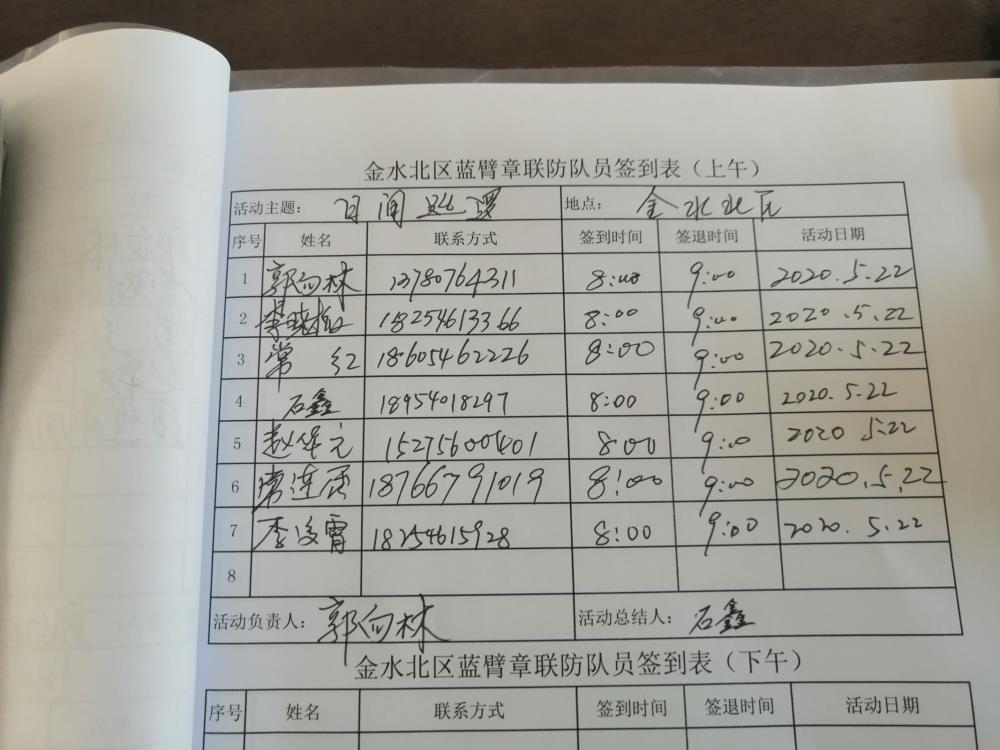 金水北区蓝臂章联防队员签到表（上午）
活动主题： 日间巡逻 地点： 金水北区
序号 姓名 联系方式 签到时间 签退时间 活动日期
1 郭向林 13780764311 8:00 9:00 2020.5.22
2 18254613366 8:00 9:00 2020.5.22
3 常红 18605462226 8:00 9:00 2020.5.22
4 石鑫 18954018297 8:00 9:00 2020.5.22
5 赵华元 15275600401 8:00 9:00 2020 5.22
6 常连 18766791019 8:00 9:00 2020.5.22
7 李凌霄 18254615928 8:00 9:00 2020.5.22
8
活动负责人： 郭向林 活动总结人： 石鑫
金水北区蓝臂章联防队员签到表（下午）
序号 姓名 联系方式 签到时间 签退时间 活动日期